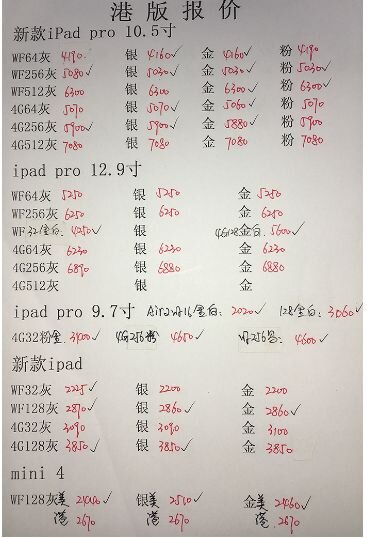 港版报价
新款iPad pro 10.5寸
WF64灰 4190. 银 4160✓ 金 4160✓ 粉 4190
WF256灰 5080✓ 银 5030✓ 金 5030✓ 粉 5030✓
WF512灰 6300 银 6300✓ 金 6300✓ 粉 6300✓
4G64灰 5070 银 5070✓ 金 5060✓ 粉 5070
4G256灰 5900✓ 银 5900✓ 金 5880✓ 粉 5900
4G512灰 7080 银 7080 金 7080 粉 7080
ipad pro 12.9寸
WF64灰 5250 银 5250 金 5250
WF256灰 6250 银 6250 金 6250
WF32金白: 4250✓ 银 4G128金白: 5600✓
4G64灰 6230 银 6230 金 6230
4G256灰 6890 银 6880 金 6880
4G512灰 银 金
ipad pro 9.7寸 Air2 wifi16金白: 2020✓ 128金白: 3060✓
4G32粉金 3400✓ 4G256粉 4650✓ 256 4600✓
新款ipad
WF32灰 2225✓ 银 2200 金 2200
WF128灰 2870✓ 银 2860✓ 金 2860✓
4G32灰 3090 银 3090 金 3100
4G128灰 3850✓ 银 3850✓ 金 3850
mini 4
WF128灰美 银美 金美 2460✓
港 2670 港 2670 港 2670